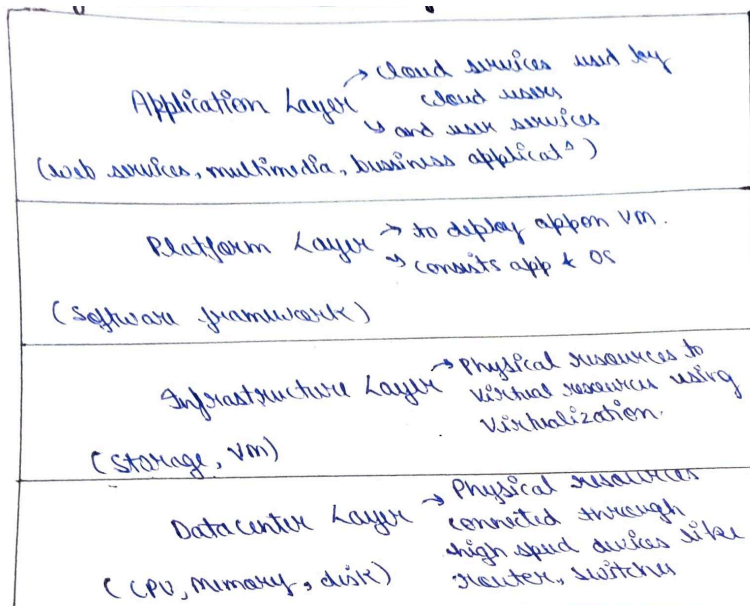 Application Layer → cloud services used by
cloud users
↘ and user services
(web services, multimedia, bussiness applicatⁿˢ)
Platform Layer → to deploy app on VM.
→ consists app & OS
(Software framework)
Infrastructure Layer → Physical resources to
virtual resources using
virtualization.
(storage, VM)
Datacenter Layer → Physical resources
connected through
high speed devices like
(CPU, memory, disk) router, switches